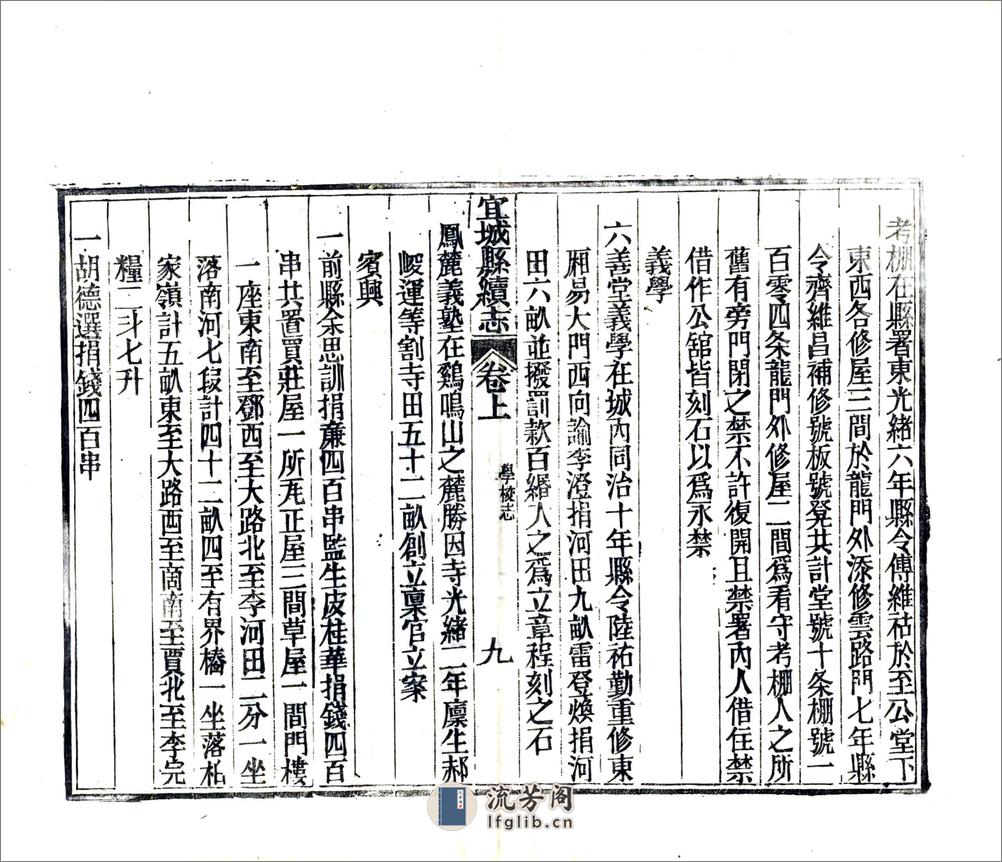 考棚在縣署東光緒六年縣令傅維祜於至公堂下
東西各修屋三間於龍門外添修雲路門七年縣
令齊維昌補修號板號凳共計堂號十条棚號一
百零四条龍門外修屋二間爲看守考棚人之所
舊有旁門閉之禁不許復開且禁署內人借住禁
借作公舘皆刻石以爲永禁
義學
六善堂義學在城內同治十年縣令陸祐勤重修東
厢易大門西向諭李澄捐河田九畝雷登煥捐河
田六畝並撥罰款百緡入之爲立章程刻之石
宜城縣續志
卷上
學校志
九
鳳麓義塾在鷄鳴山之麓勝因寺光緒二年廪生郝
畯運等割寺田五十二畝創立禀官立案
賓興
一前縣余思訓捐亷四百串監生皮桂華捐錢四百
串共置買莊屋一所𤓰正屋三間草屋一間門樓
一座東南至鄧西至大路北至李河田二分一坐
落南河七叚計四十二畝四至有界樁一坐落
家嶺計五畝東至大路西至商南至賈北至李完
糧二斗七升
一胡德選捐錢四百串
流芳阁
lfglib.cn